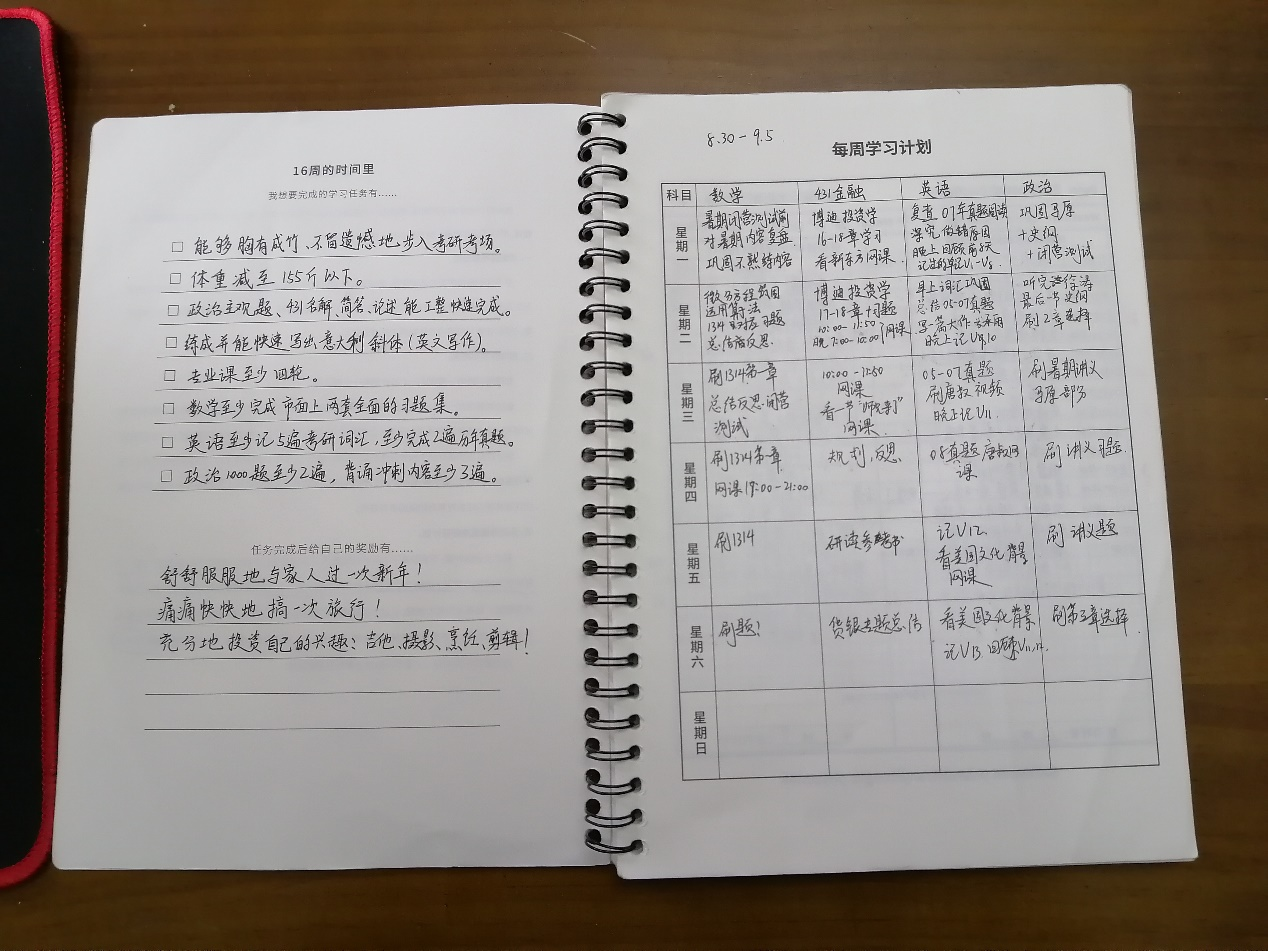 16周的时间里
我想要完成的学习任务有……
□ 能够胸有成竹、不留遗憾地步入考研考场。
□ 体重减至155斤以下。
□ 政治主观题、431名解、简答、论述能工整快速完成。
□ 练成并能快速写出意大利斜体(英文写作)。
□ 专业课至少四轮。
□ 数学至少完成市面上两套全面的习题集。
□ 英语至少记5遍考研词汇,至少完成2遍历年真题。
□ 政治1000题至少2遍,背诵冲刺内容至少3遍。
任务完成后给自己的奖励有……
舒舒服服地与家人过一次新年!
痛痛快快地搞一次旅行!
充分地投资自己的兴趣:吉他、摄影、烹饪、剪辑!
8.30-9.5
每周学习计划
科目 数学 431金融 英语 政治
星期一
暑期闭营测试前
对暑期内容复盘
巩固不熟练内容
博迪投资学
16-18章学习
看新东方网课
复盘07年真题阅读
深究做错原因
晚上回顾前8天
记过的单词V1-V8
巩固马原
+史纲
+闭营测试
星期二
微分方程巩固
运用算法
1314对应习题
总结后反思
博迪投资学
17-18章+习题
10:00-11:50
晚7:00-10:00 网课
早上词汇巩固
总结05-07真题
写一篇大作文
晚上记V9,10
听完徐涛
最后一节史纲
刷2章选择
星期三
刷1314第一章
总结反思闭营
测试
10:00-11:50
网课
看一节
网课
05-07真题
刷唐叔视频
晚上记V11
刷暑期讲义
马原部分
星期四
刷1314第一章
网课19:00-21:00
规划,反思
08真题唐叔网
课
刷讲义习题
星期五
刷1314
研读参考书
记V12
看美国文化背景
网课
刷讲义题
星期六
刷题!
货银专题总结
看美国文化背景
记V13 回顾V11,12
刷第3章选择
星期日